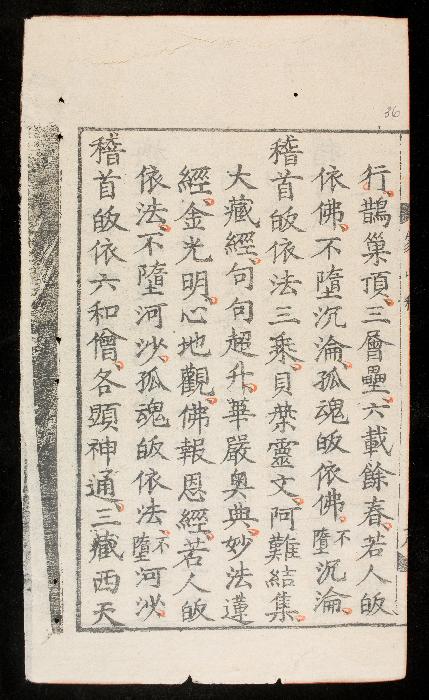 36
行。鵲巢頂。三層壘。六載餘春。若人皈
依佛。不墮沉淪。孤魂皈依佛。不墮沉淪。
稽首皈依法三乘。貝葉靈文。阿難結集。
大藏經。句句超升。華嚴奧典。妙法蓮
經。金光明。心地觀。佛報恩經。若人皈
依法。不墮河沙。孤魂皈依法。不墮河沙。
稽首皈依六和僧。各顯神通。三藏西天